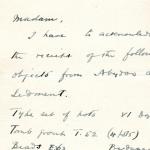 Madam,
I have to acknowled
the receipt of the follow
objects from Abydos a
Sedment.
Type set of pots VI Dy
Tomb group T.62 (4 pots)
Beads E60